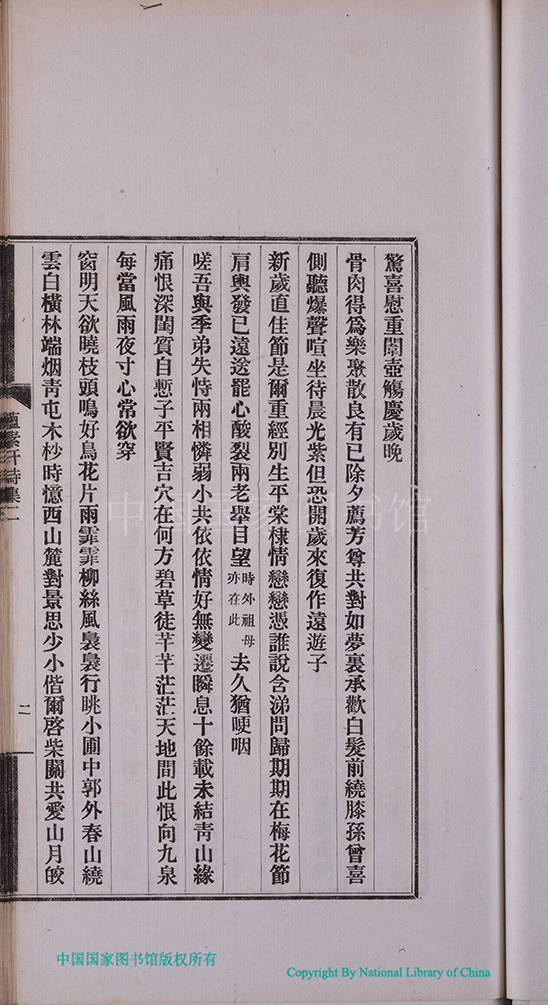 驚喜慰重闈壺觴慶歲晚
骨肉得爲樂聚散良有已除夕薦芳尊共對如夢裏承歡白髮前繞膝孫曾喜
側聽爆聲喧坐待晨光紫但恐開歲來復作遠遊子
新歲直佳節是爾重經別生平棠棣情戀戀憑誰說含涕問歸期期在梅花節
肩輿發已遠送罷心酸裂兩老舉目望時外祖母亦在此去久猶哽咽
嗟吾與季弟失恃兩相憐弱小共依依情好無變遷瞬息十餘載未結青山緣
痛恨深閨質自慙子平賢吉穴在何方碧草徒芊芊茫茫天地間此恨向九泉
每當風雨夜寸心常欲穿
窗明天欲曉枝頭鳴好鳥花片雨霏霏柳絲風裊裊行眺小圃中郭外春山繞
雲白橫林端烟青屯木杪時憶西山麓對景思少小偕爾啓柴關共愛山月皎
蘊素軒詩集二
二
中国国家图书馆
中国国家图书馆版权所有
Copyright By National Library of China